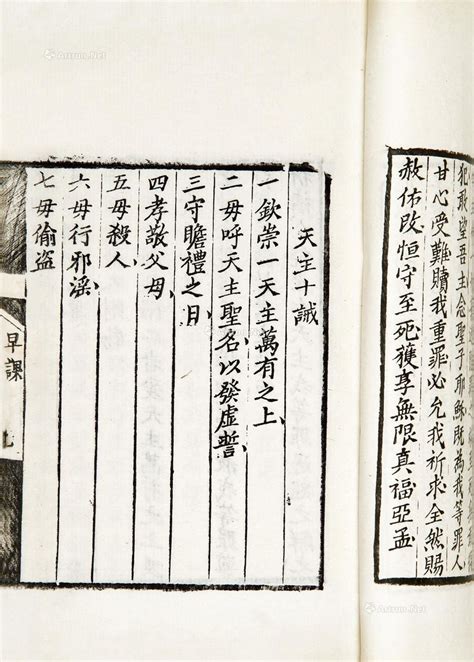 犯敢望吾主念聖子耶穌既為我等罪人
甘心受難贖我重罪必允我祈求全然賜
赦佑改恒守至死獲享無限真福亞孟
天主十誡
一欽崇一天主萬有之上
二毋呼天主聖名以發虛誓
三守瞻禮之日
四孝敬父母
五毋殺人
六毋行邪淫
七毋偷盜
早課
Artron.Net
Artron.Net